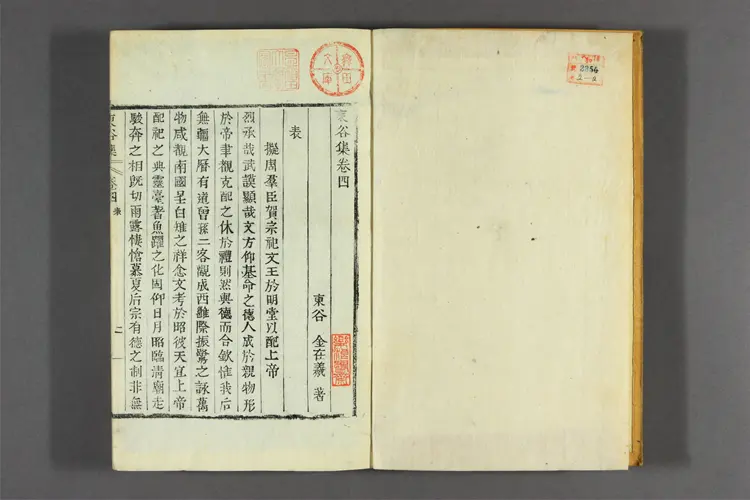 東谷集卷四
東谷 金在羲 著
表
擬周羣臣賀宗祀文王於明堂以配上帝
烈承哉武謨顯哉文方仰基命之德人成於親物形
於帝聿觀克配之休於禮則然與德而合欽惟我后
無疆大曆有道曾孫二客觀成西雝際振鷺之詠萬
物咸覩南國呈白雉之祥念文考於昭彼天宜上帝
配祀之典靈臺著魚躍之化因仰日月昭臨清廟走
駿奔之相旣切雨露悽愴慕夏后宗有德之制非無
東谷集 卷四 表 二
2256
2—2